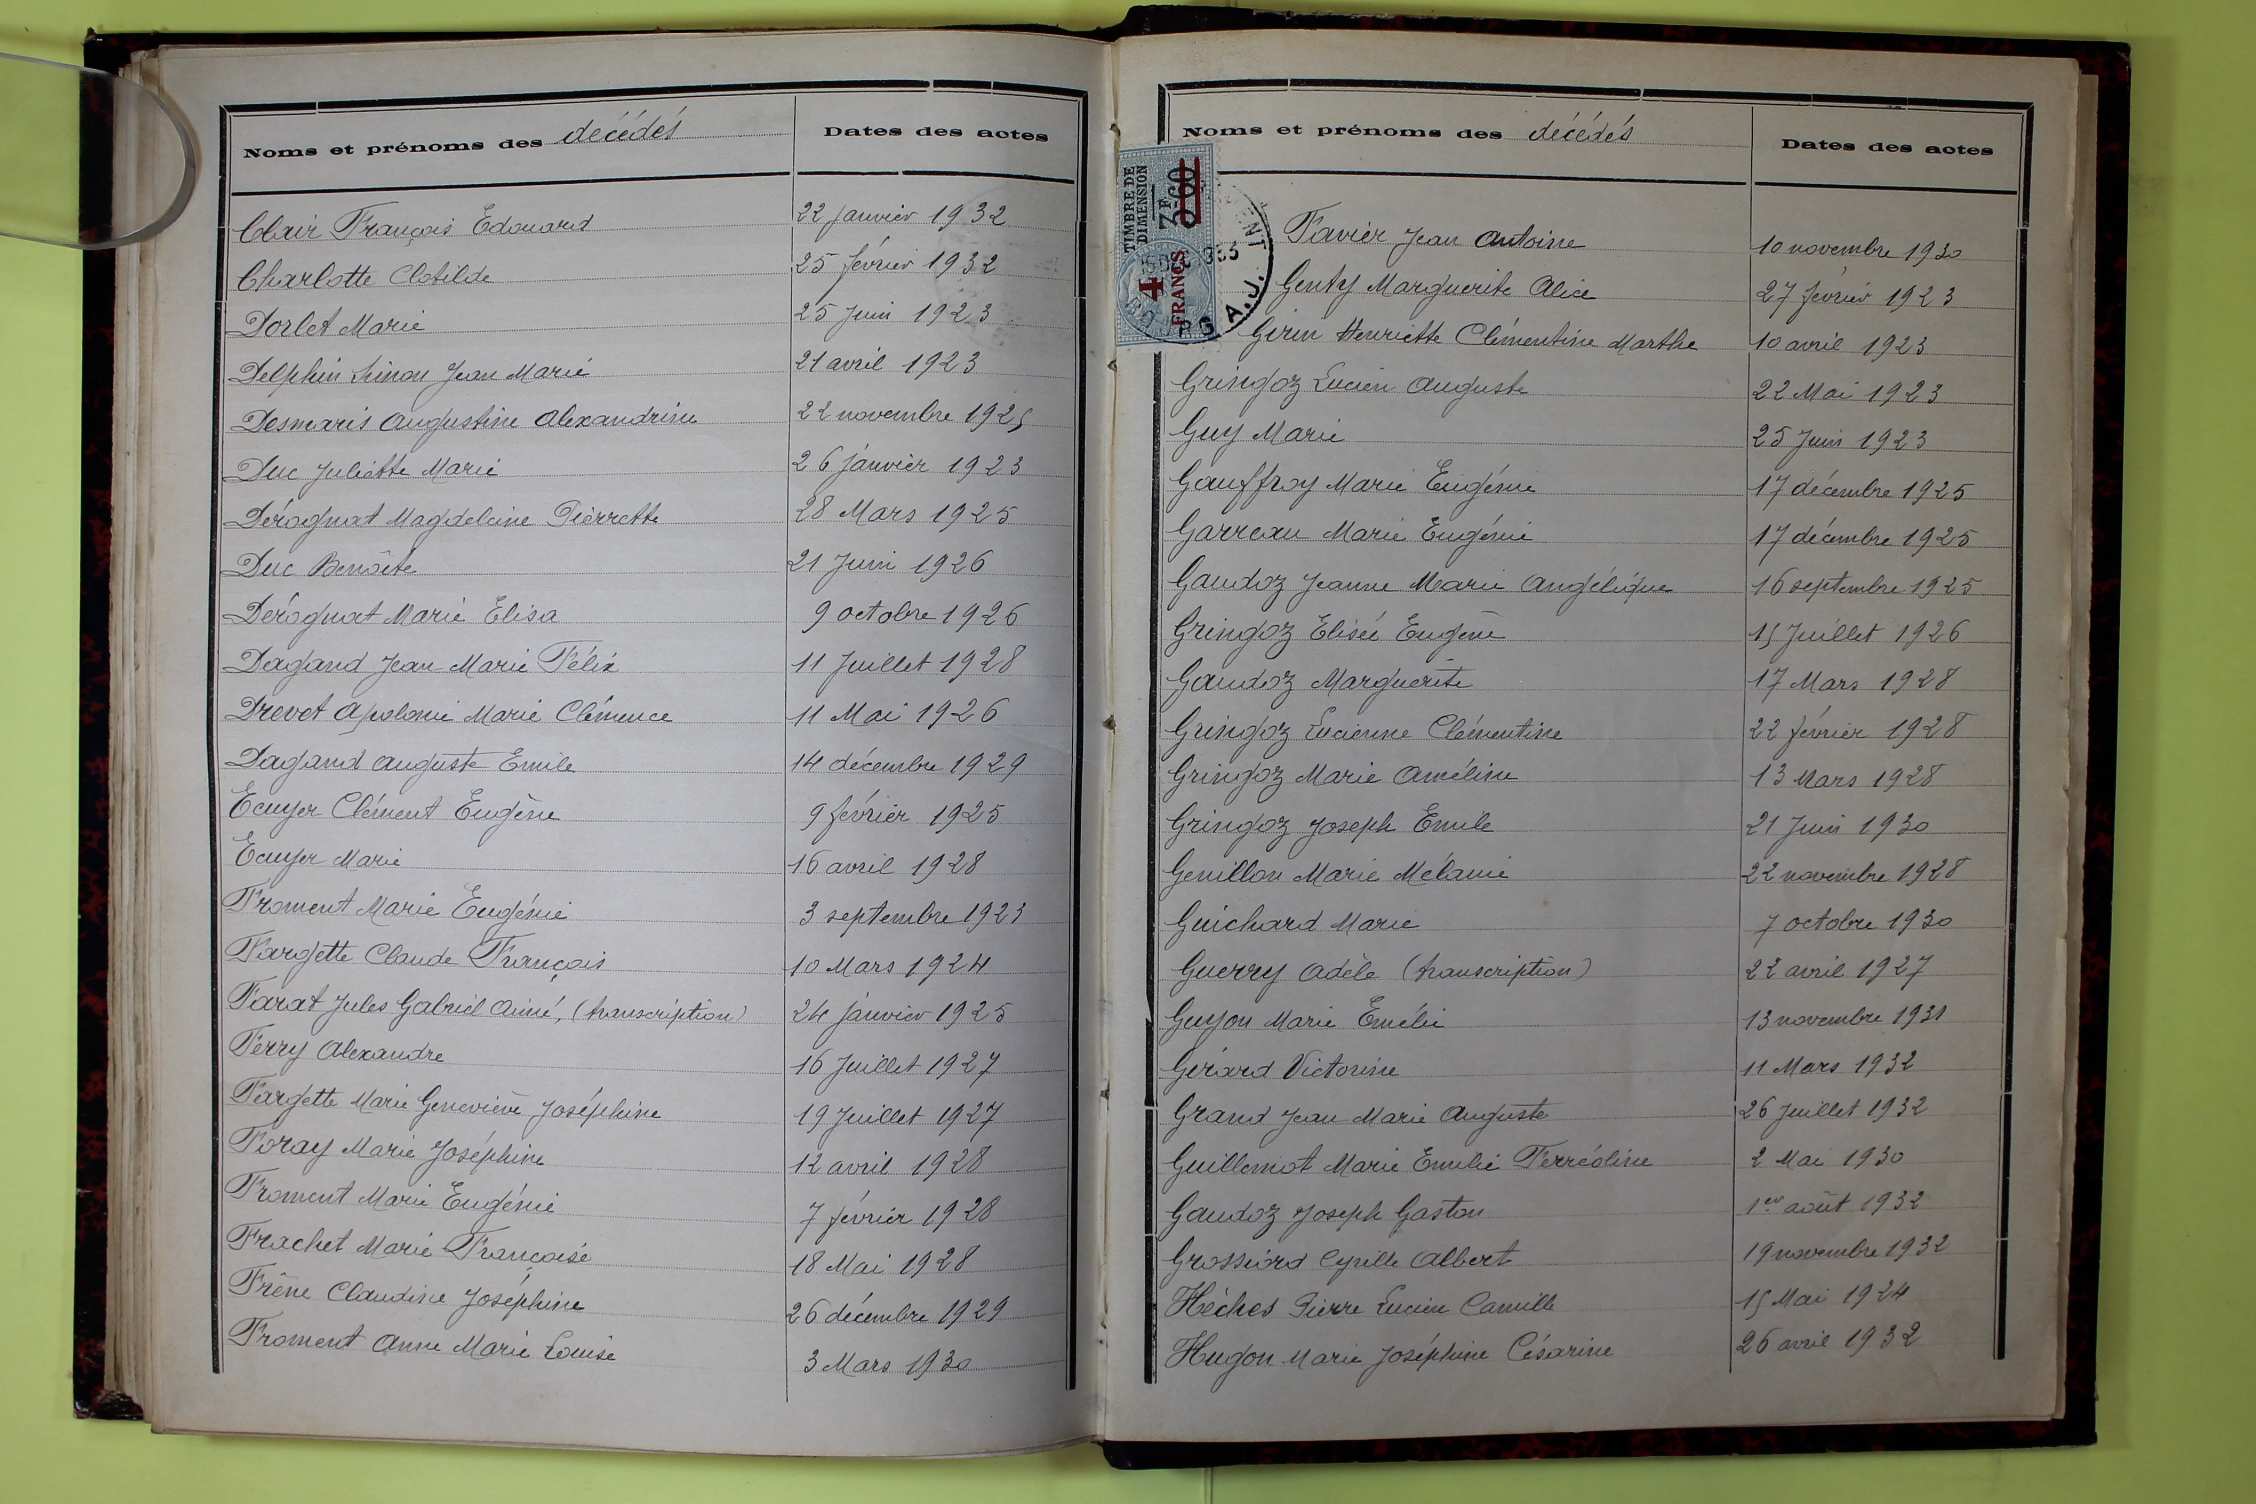 Noms et prénoms des décédés Dates des actes
Clair François Edouard 22 janvier 1932
Charlotte Clotilde 25 février 1932
Dorlet Marie 25 Juin 1923
Delphin Simon Jean Marie 21 avril 1923
Desmaris Augustine Alexandrine 22 novembre 1925
Duc Juliette Marie 26 janvier 1923
Dérognat Magdeleine Pierrette 28 Mars 1925
Duc Benoîte 21 Juin 1926
Dérognat Marie Elisa 9 octobre 1926
Dagand Jean Marie Félix 11 Juillet 1928
Drevet Apolonie Marie Clémence 11 Mai 1926
Dagand Auguste Emile 14 décembre 1929
Ecuyer Clément Eugène 9 février 1925
Ecuyer Marie 16 avril 1928
Froment Marie Eugénie 3 septembre 1923
Fargette Claude François 10 Mars 1924
Farat Jules Gabriel Aimé, (transcription) 24 janvier 1925
Ferry Alexandre 16 Juillet 1927
Fargette Marie Geneviève Joséphine 19 Juillet 1927
Foray Marie Joséphine 12 avril 1928
Froment Marie Eugénie 7 février 1928
Frachet Marie Françoise 18 Mai 1928
Frêne Claudine Joséphine 26 décembre 1929
Froment Anne Marie Louise 3 Mars 1930
Noms et prénoms des décédés Dates des actes
TIMBRE DE
DIMENSION
3F.60
4
FRANCS
A.J.
Favier Jean Antoine 10 novembre 1930
Genty Marguerite Alice 27 février 1923
Girin Henriette Clémentine Marthe 10 avril 1923
Gringoz Lucien Auguste 22 Mai 1923
Guy Marie 25 Juin 1923
Gauffroy Marie Eugénie 17 décembre 1925
Garreau Marie Eugénie 17 décembre 1925
Gaudoz Jeanne Marie Angélique 16 septembre 1925
Gringoz Elisée Eugène 15 Juillet 1926
Gaudoz Marguerite 17 Mars 1928
Gringoz Lucienne Clémentine 22 février 1928
Gringoz Marie Améline 13 Mars 1928
Gringoz Joseph Emile 21 Juin 1930
Genillon Marie Mélanie 22 novembre 1928
Guichard Marie 7 octobre 1930
Guerry Adèle (transcription) 22 avril 1927
Guyon Marie Emélie 13 novembre 1931
Gérard Victorine 11 Mars 1932
Grand Jean Marie Auguste 26 Juillet 1932
Guillemot Marie Emélie Ferréoline 2 Mai 1930
Gaudoz Joseph Gaston 1er août 1932
Grossiord Cyrille Albert 19 novembre 1932
Héches Pierre Lucien Camille 15 Mai 1924
Hugon Marie Joséphine Césarine 26 avril 1932